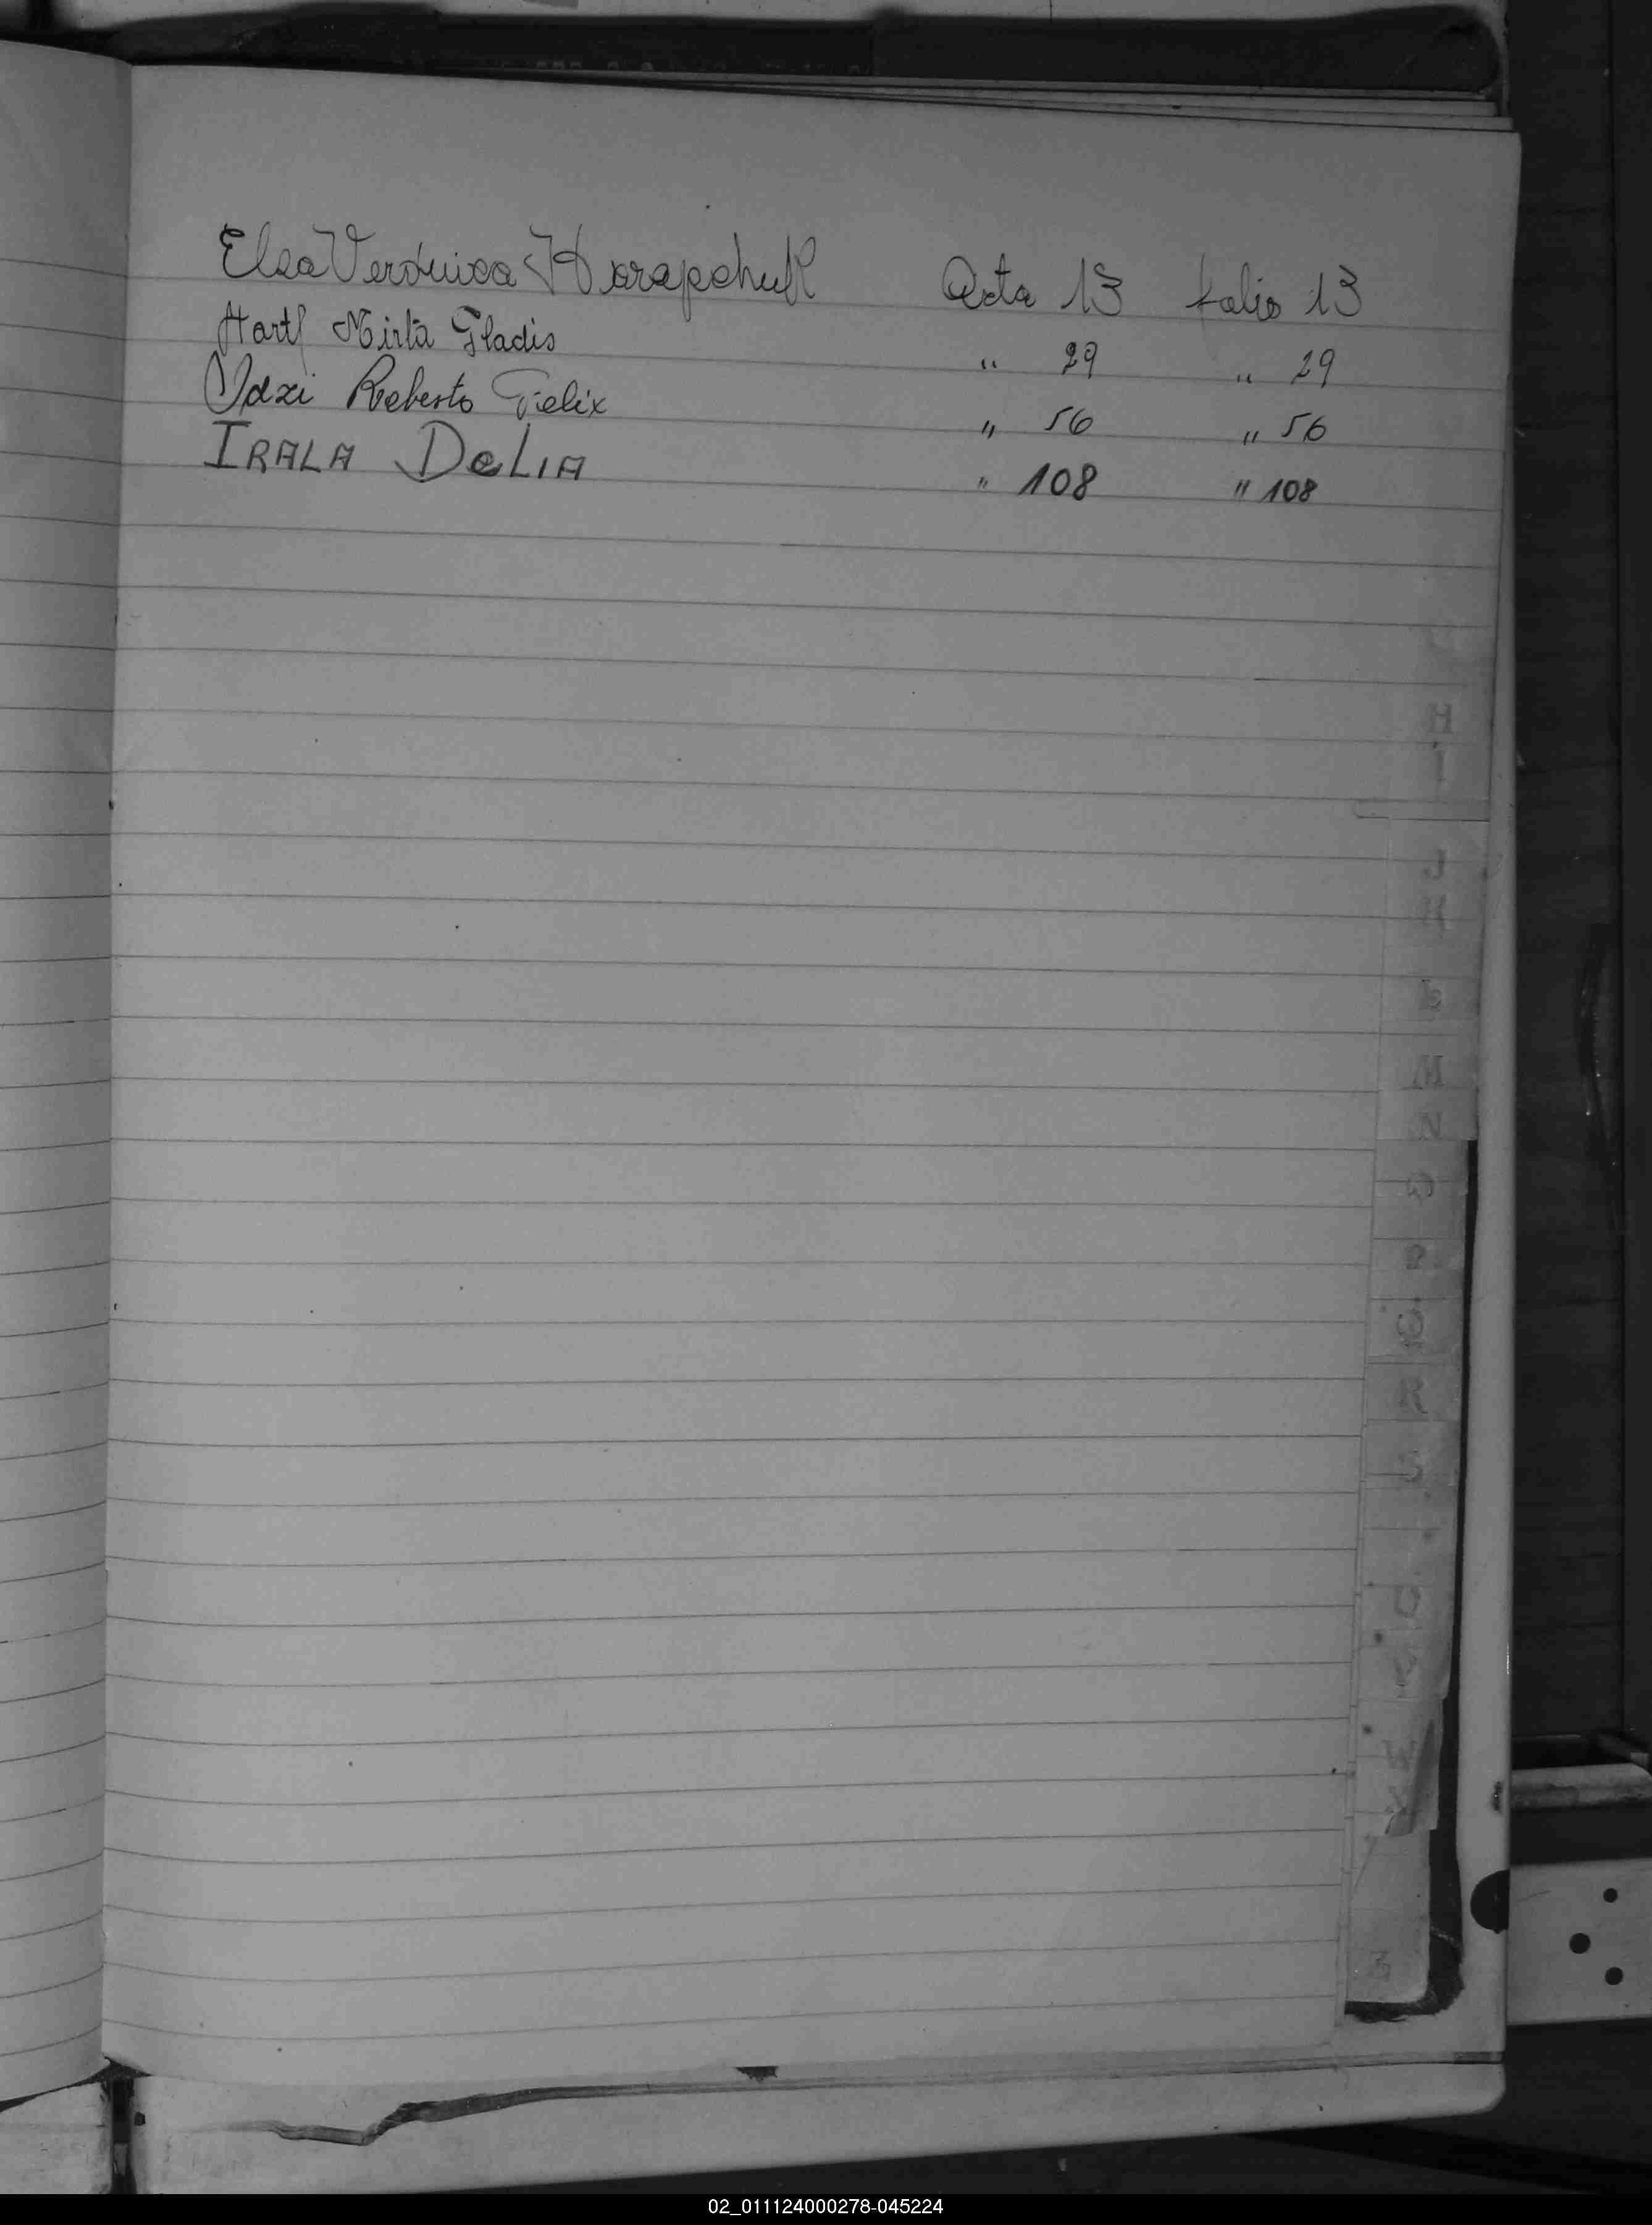 Elsa Verónica Harapchuk Acta 13 folio 13
Hartl Mirta Gladis " 29 " 29
Roberto Felix " 56 " 56
IRALA DeLIA " 108 " 108
H
I
J
K
L
M
N
O
P
Q
R
S
U
V
W
02_011124000278-045224